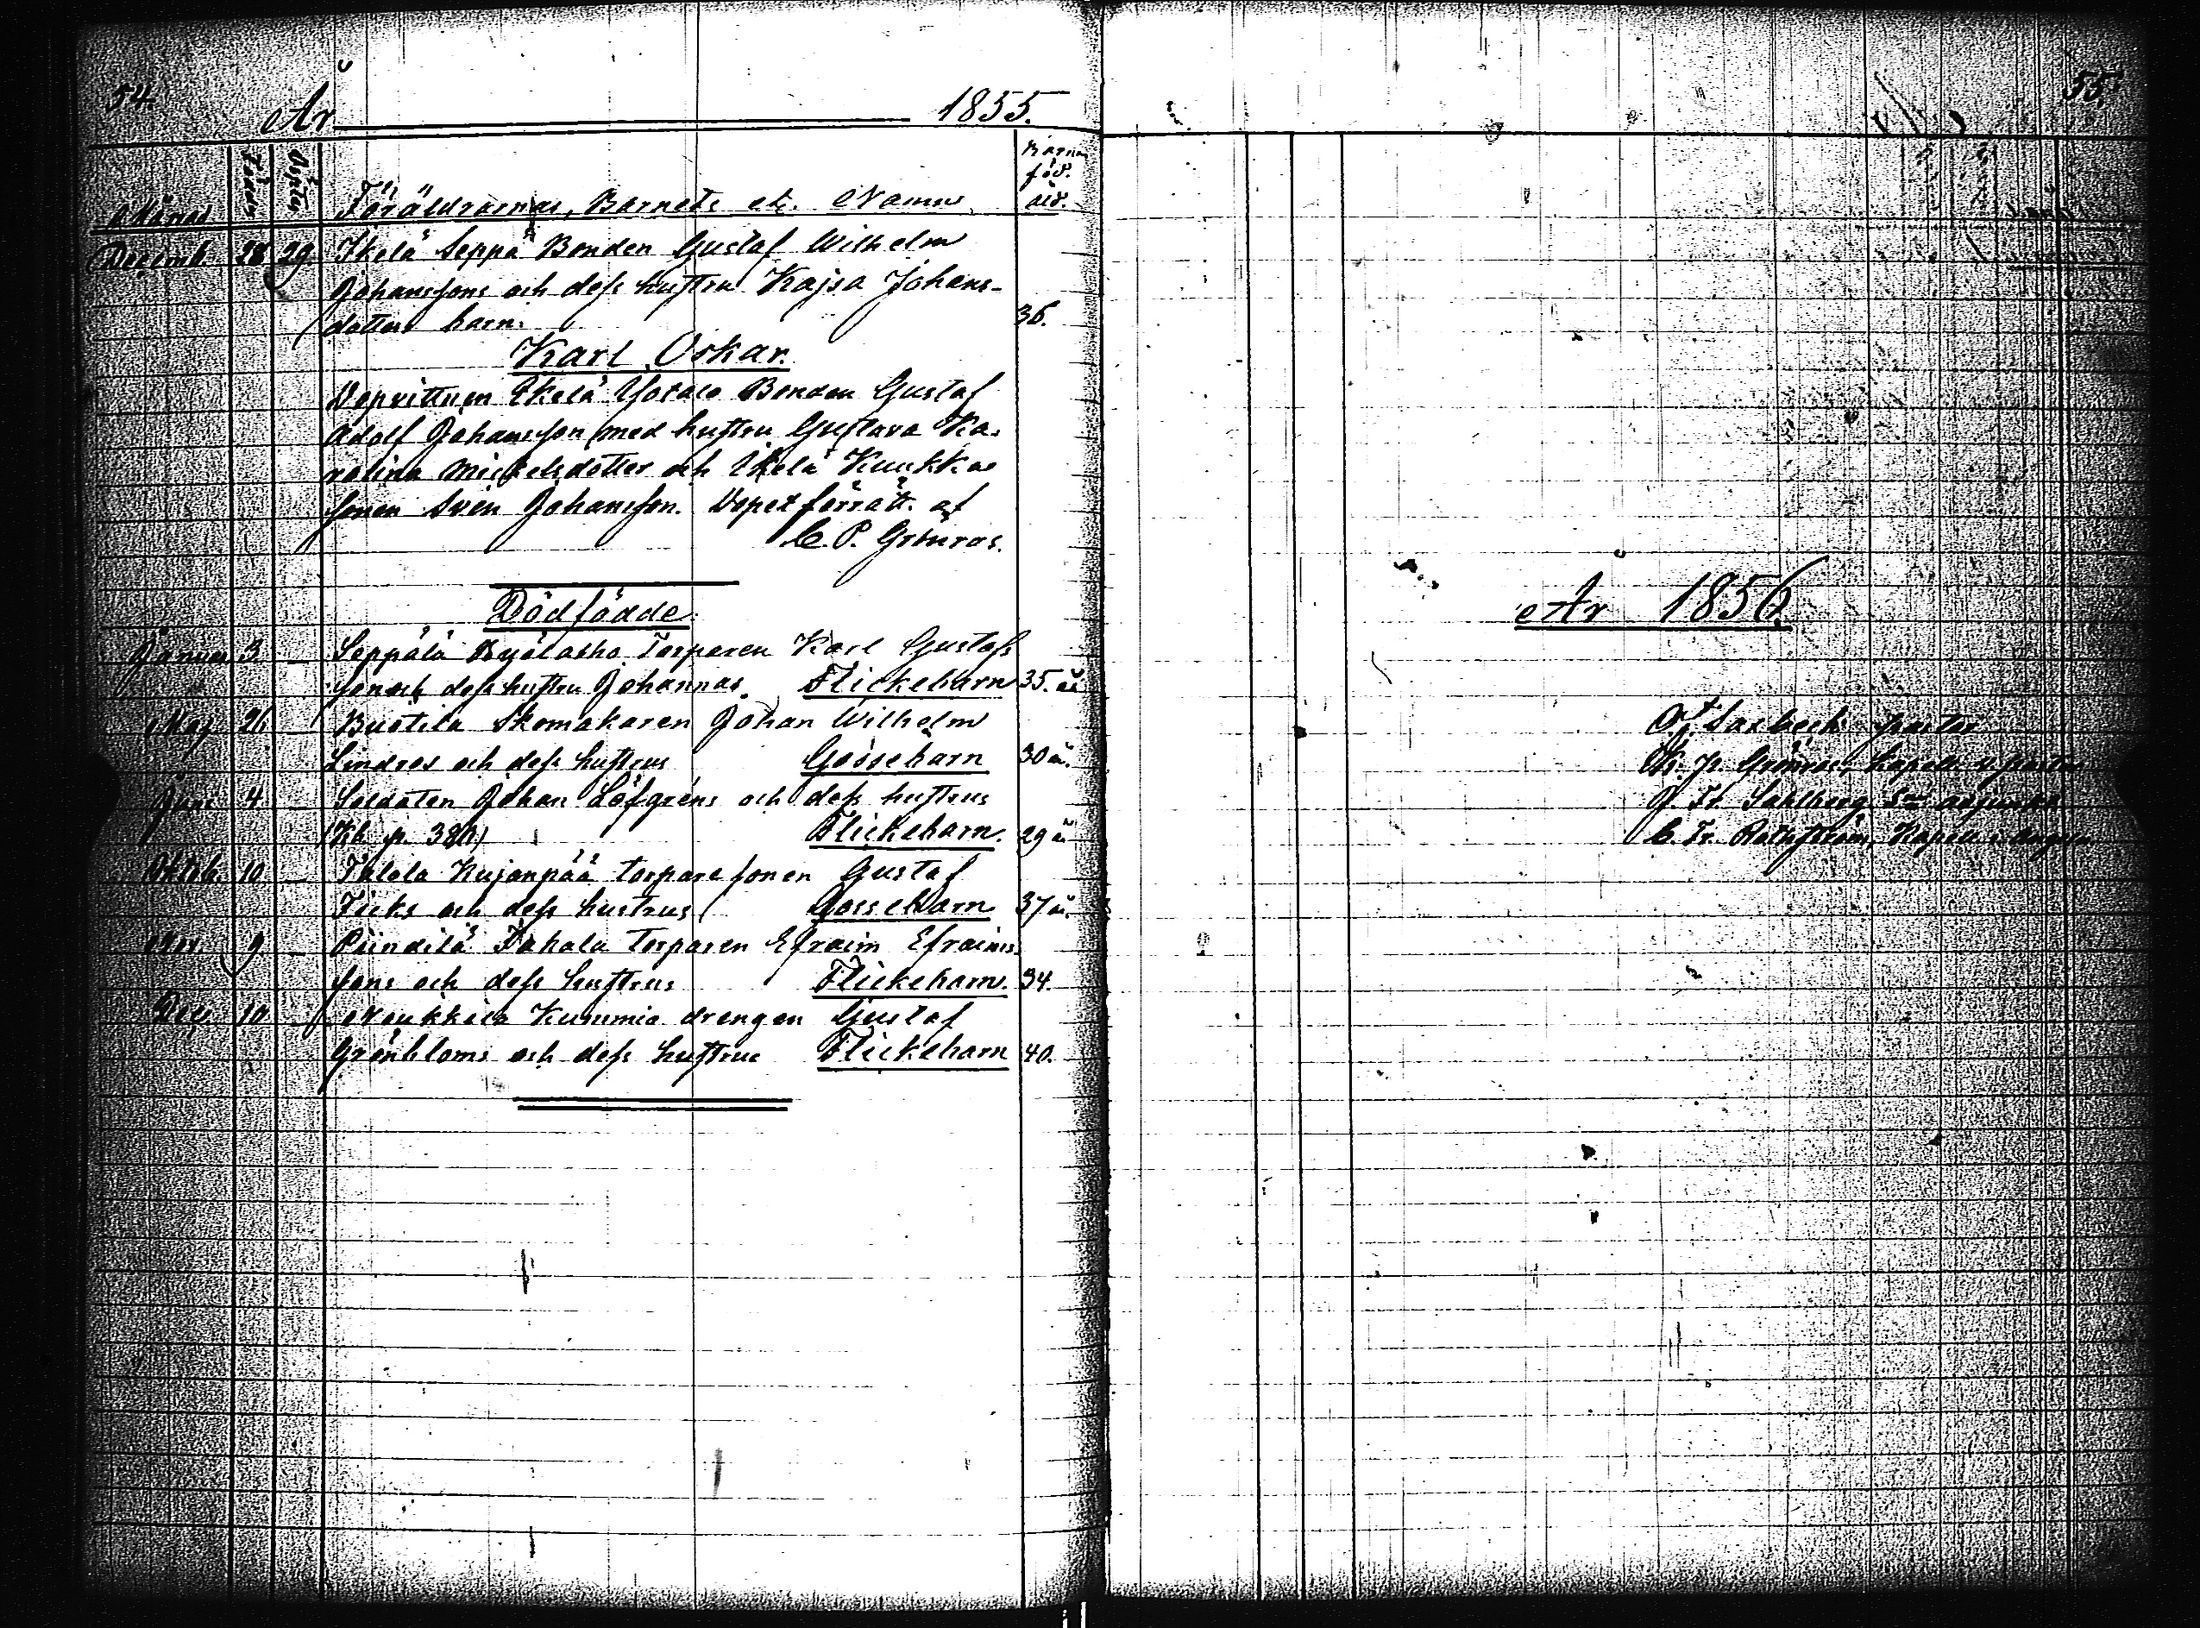 54
År 1855.
Månad
Födde
Döpte
Föräldrarnas, Barnets etc. Namn
Barna föd. åld.
Decemb. 28 29 Ikelä Seppä Bonden Gustaf Wilhelm
Johanssons och dess hustru Kajsa Johans-
dotters barn: 36.
Karl Oskar.
Dopvittnen Ikelä Yotalo Bonden Gustaf
Adolf Johansson med hustru Gustava Ka-
rolina Mickelsdotter och Ikelä Kuukka
sonen Sven Johansson. Dopet förrätt. af
C. P. Grönros.
Dödfödde
Januar 3 Seppälä Torparen Karl Gustafs
son och dess hustru Johannas. Flickebarn 35. år
Maj 26 Bustila Skomakaren Johan Wilhelm
Lindros och dess hustrus Gossebarn 30 år.
Juni 4 Soldaten Johan Löfgréns och dess hustrus
(Kb. p. 380) Flickebarn. 29 år
Oktob. 10 Talola Kujanpää torparesonen Gustaf
Ficks och dess hustrus Gossebarn 37 år.
Nov. 9 Piindilä Torparen Efraim Efraims
sons och dess hustrus Flickebarn. 34.
Dec. 10 Kuusmia drengen Gustaf
Grönbloms och dess hustrus Flickebarn 40.
55.
År 1856.
Saxbeck pastor
Kr. P. Grönros, Kapell. v. pastor
J. Fr. Sahlberg adjunkt
C. Fr. Rothström, Kapell. i